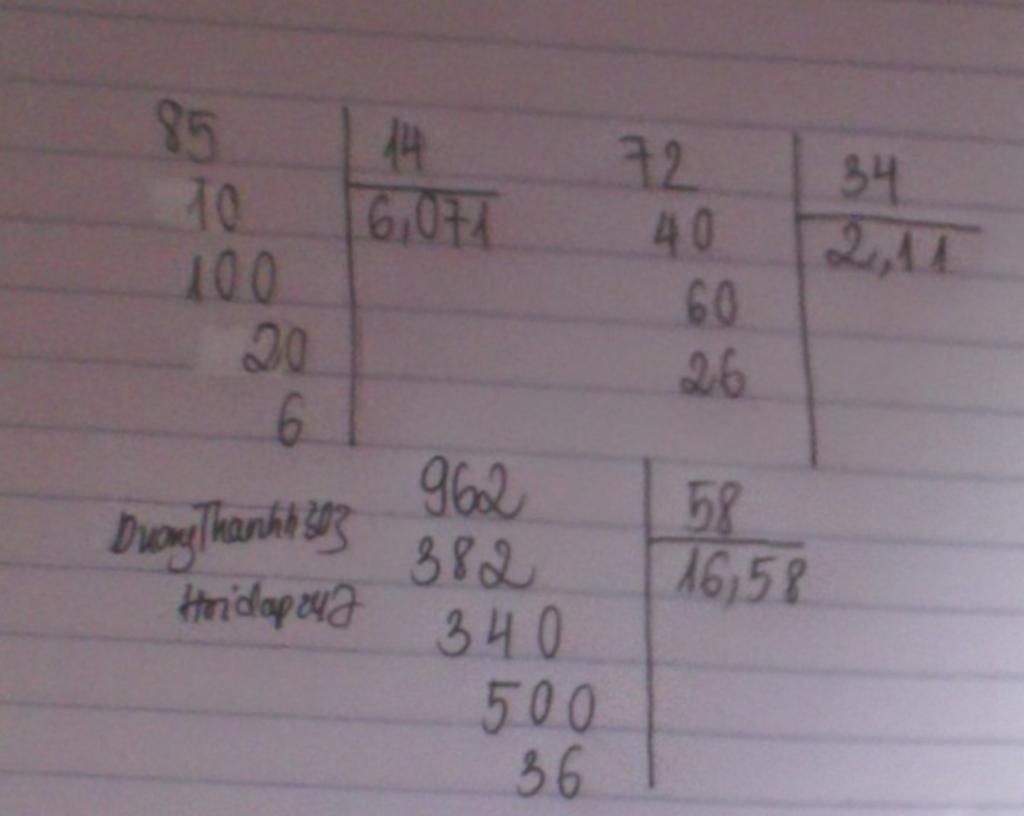 85 14
10 6,071
100
20
6
72 34
40 2,11
60
26
962 58
382 16,58
340
500
36
DuongThanhh303
Hoidap247